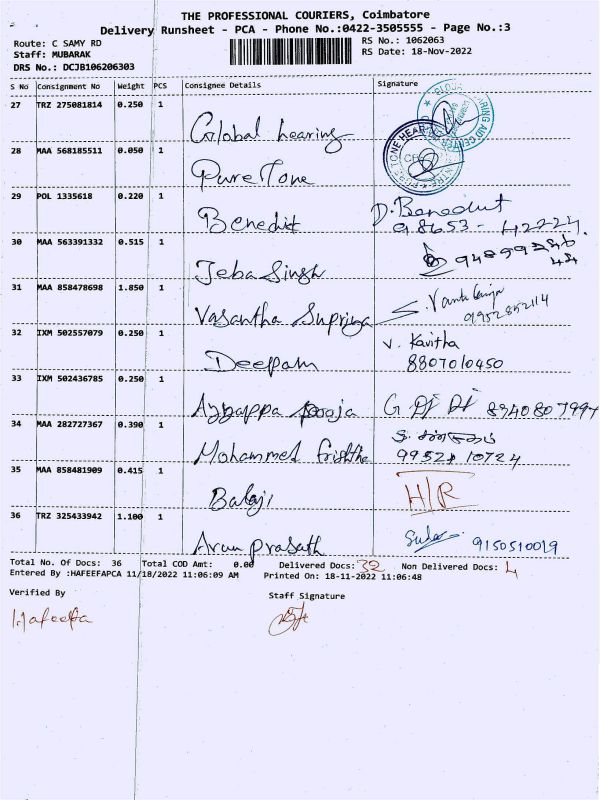 THE PROFESSIONAL COURIERS, Coimbatore
Delivery Runsheet - PCA - Phone No.:0422-3505555 - Page No.:3
Route: C SAMY RD
RS No.: 1062063
Staff: MUBARAK
RS Date: 18-Nov-2022
DRS No.: DCJB106206303
S No Consignment No Weight PCS Consignee Details Signature
27 TRZ 275081814 0.250 1 Global hearing
28 MAA 568185511 0.050 1 Pure Tone
29 POL 1335618 0.220 1 Benedict D. Benedict
98653-42224.
30 MAA 563391332 0.515 1 Jeba Singh
31 MAA 858478698 1.850 1 Vasantha Supriya
9952852114
32 IXM 502557079 0.250 1 Deepam V. Kavitha
8807010450
33 IXM 502436785 0.250 1 Ayyappa pooja 8940807994
34 MAA 282727367 0.390 1 Mohammed
99521 10724
35 MAA 858481909 0.415 1 Balaji H/R
36 TRZ 325433942 1.100 1 Arun prasath 9150510019
Total No. Of Docs: 36 Total COD Amt: 0.00 Delivered Docs: 32 Non Delivered Docs: 4
Entered By :HAFEEFAPCA 11/18/2022 11:06:09 AM Printed On: 18-11-2022 11:06:48
Verified By
Staff Signature
Hafeefa